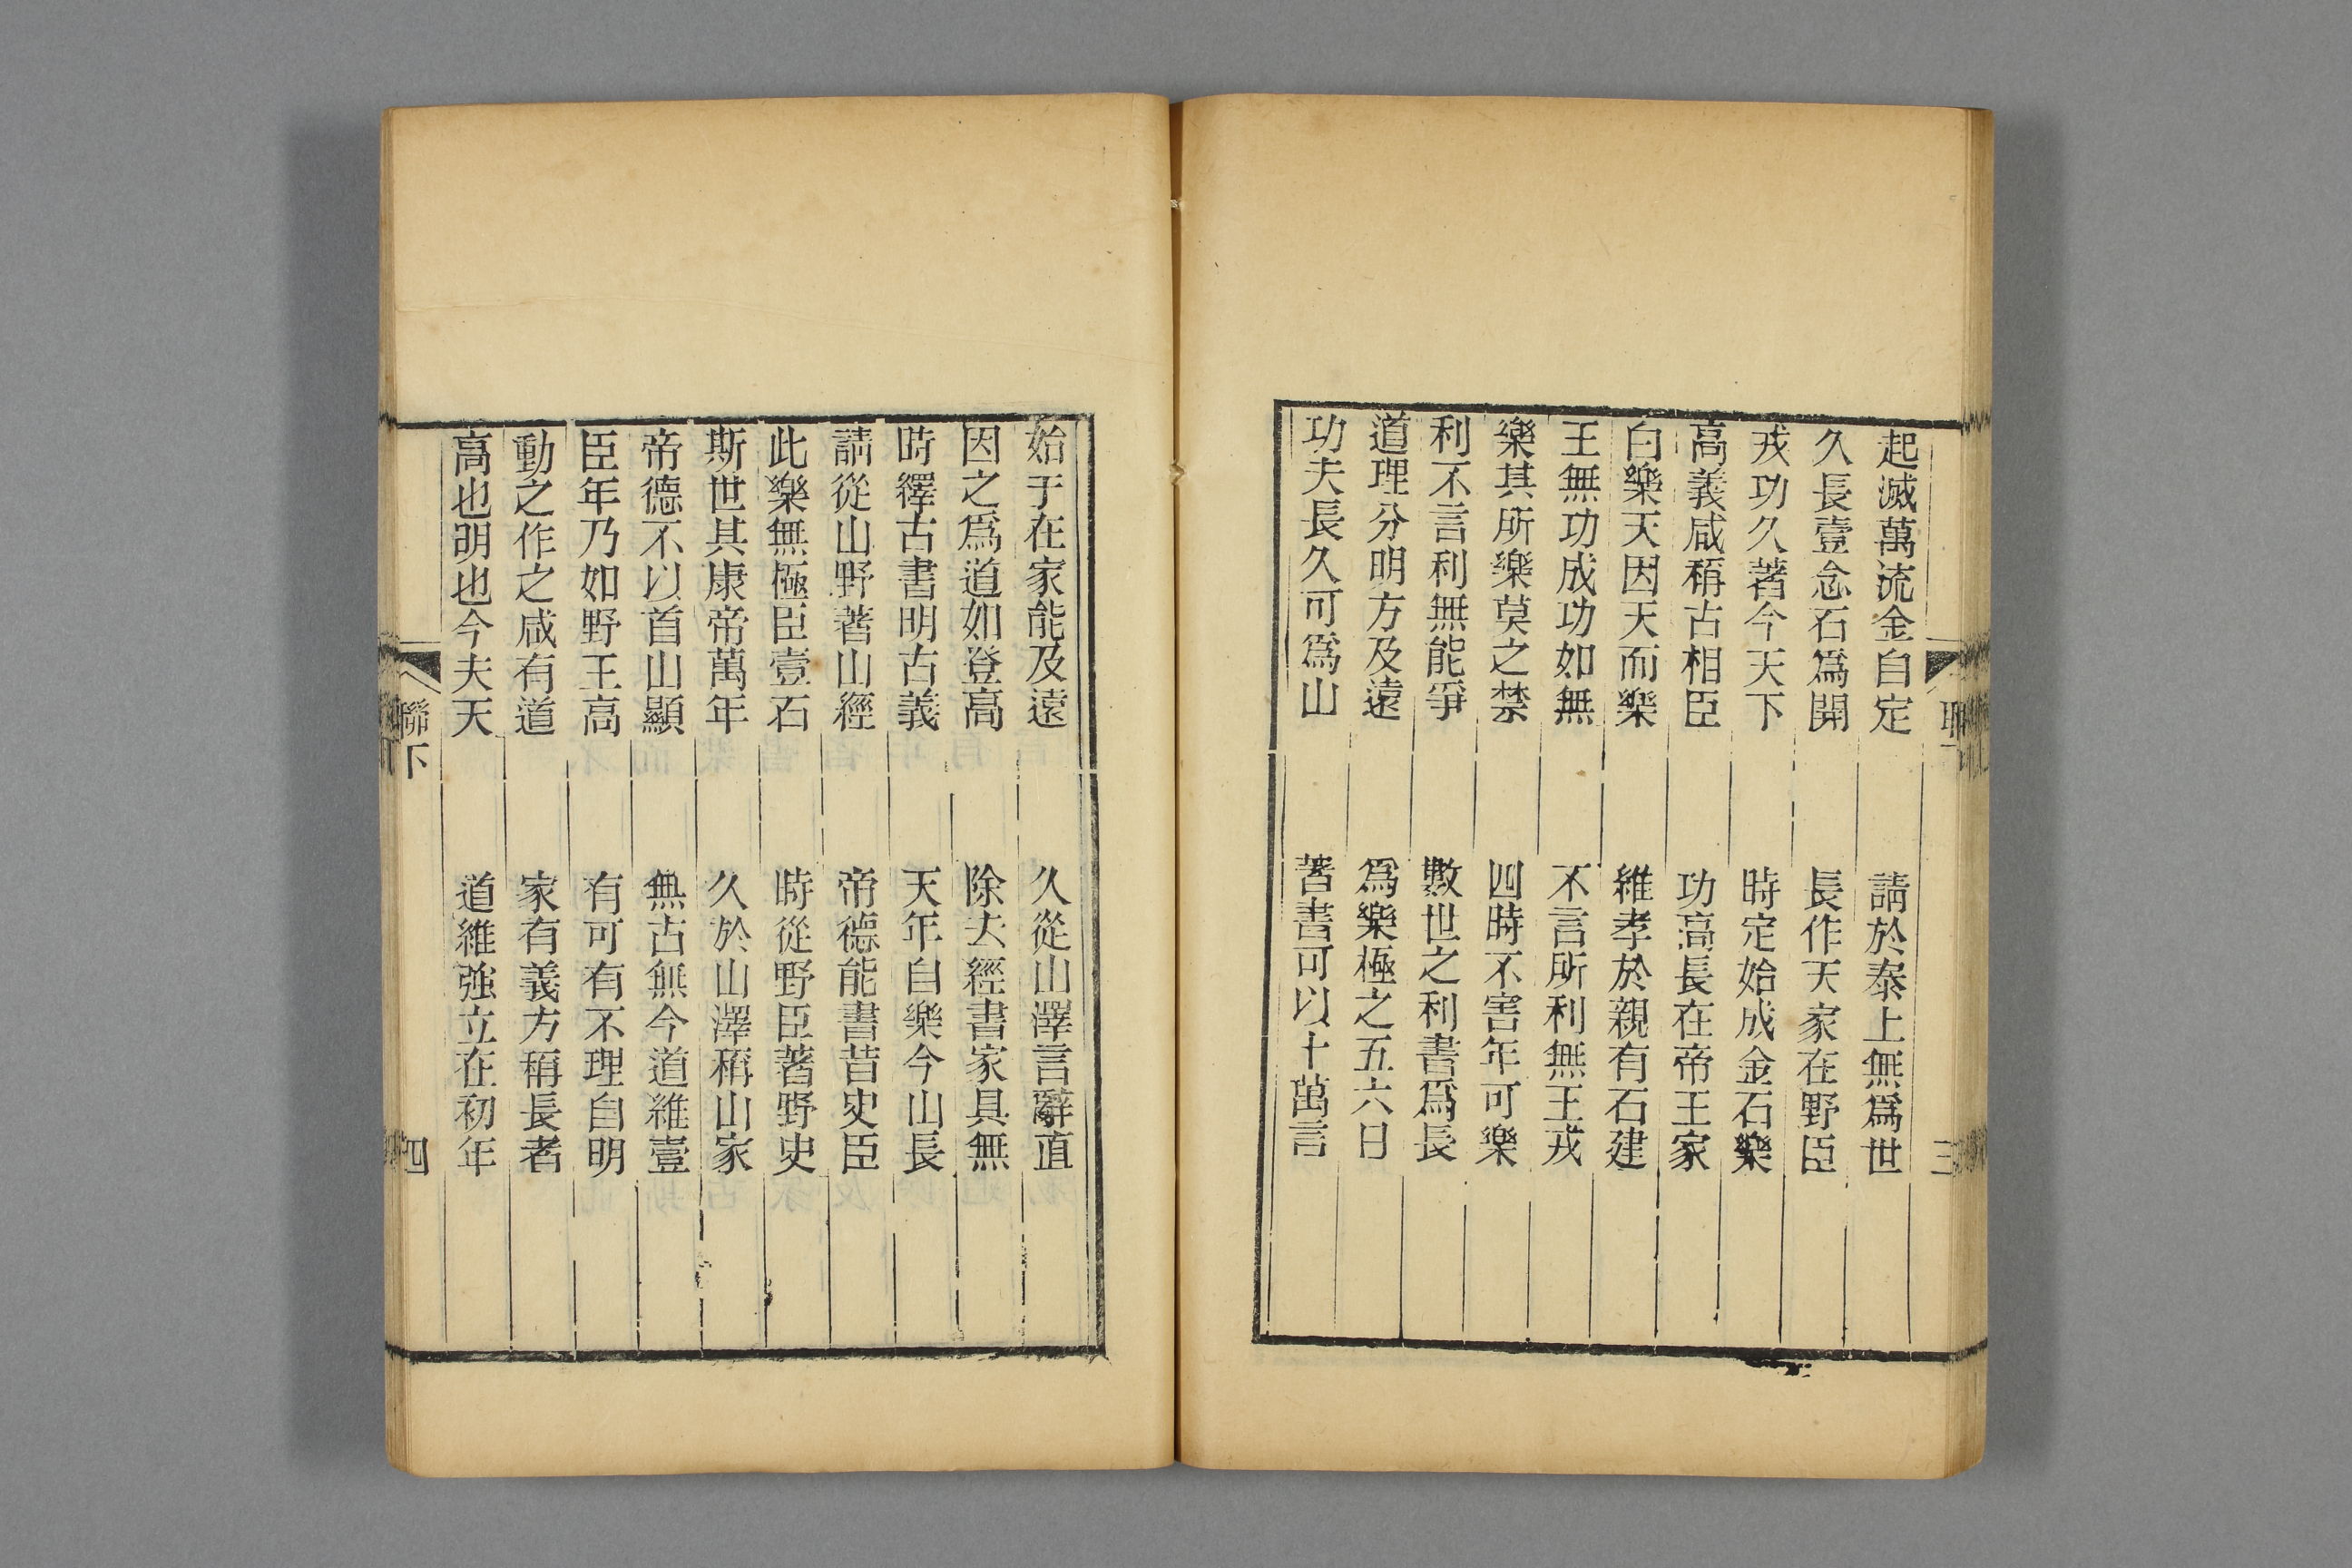 起滅萬流金自定　請於泰上無為世
久長壹念石為開　長作天家在野臣
戎功久著今天下　時定始成金石樂
高義咸稱古相臣　功高長在帝王家
白樂天因天而樂　維孝於親有石建
王無功成功如無　不言所利無王戎
樂其所樂莫之禁　四時不害年可樂
利不言利無能爭　數世之利書為長
道理分明方及遠　為樂極之五六日
功夫長久可為山　著書可以十萬言
三
始于在家能及遠　久從山澤言辭直
因之為道如登高　除去經書家具無
時繹古書明古義　天年自樂今山長
請從山野著山經　帝德能書昔史臣
此樂無極臣壹石　時從野臣著野史
斯世其康帝萬年　久於山澤稱山家
帝德不以首山顯　無古無今道維壹
臣年乃如野王高　有可有不理自明
動之作之咸有道　家有義方稱長者
高也明也今夫天　道維強立在初年
聯下
四